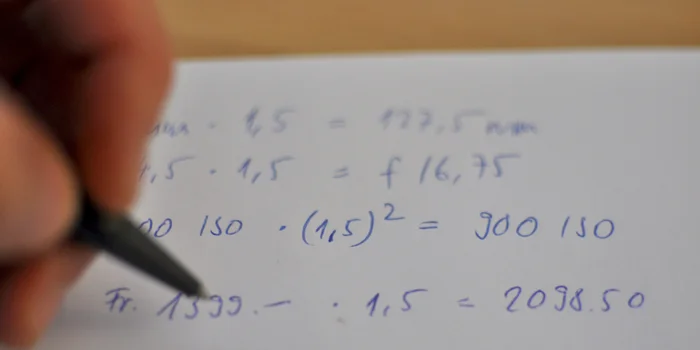 mm · 1,5 = 127,5 mm
4,5 · 1,5 = f 16,75
00 ISO · (1,5)² = 900 ISO
Fr. 1399.— · 1,5 = 2098.50